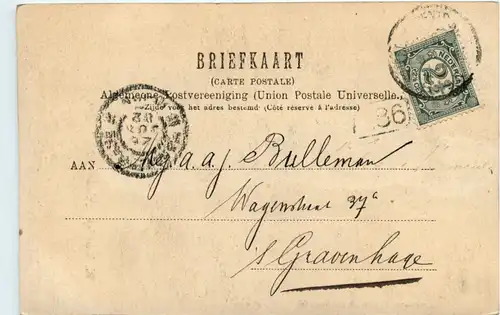 BRIEFKAART
(CARTE POSTALE)
Algemeene Postvereeniging (Union Postale Universelle.)
Zijde voor het adres bestemd. (Côté réservé à l'adresse)
36
AAN a. a. j. Bulleman
Wagenstraat 37a
s Gravenhage